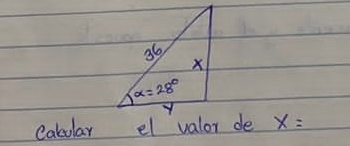 36
x
α=28°
y
Calcular el valor de x=